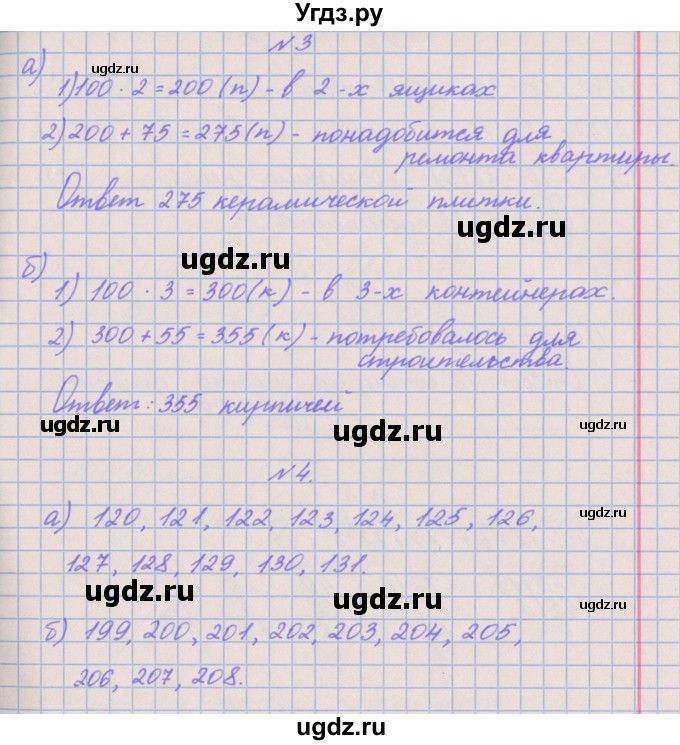 Угдз.ру
N 3
а)
ugdz.ru
1) 100 · 2 = 200 (п) - в 2-х ящиках
ugdz.ru
2) 200 + 75 = 275 (п) - понадобится для
ремонта квартиры.
ugdz.ru
Ответ 275 керамической плитки.
ugdz.ru
ugdz.ru
б)
1) 100 · 3 = 300 (к) - в 3-х контейнерах.
2) 300 + 55 = 355 (к) - потребовалось для
строительства.
Ответ: 355 кирпичей
ugdz.ru
ugdz.ru
ugdz.ru
N 4.
а) 120, 121, 122, 123, 124, 125, 126,
ugdz.ru
127, 128, 129, 130, 131.
ugdz.ru
ugdz.ru
ugdz.ru
б) 199, 200, 201, 202, 203, 204, 205,
206, 207, 208.
ugdz.ru
ugdz.ru
ugdz.ru